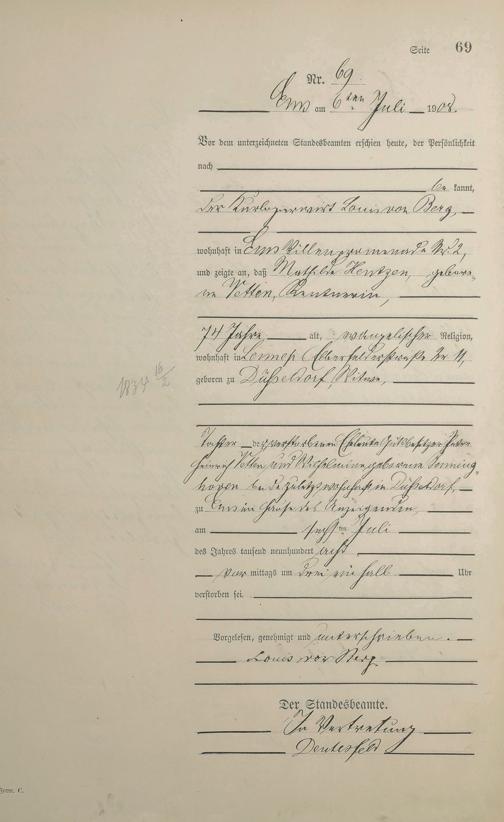 Seite 69
Nr. 69
Ems am 6ten Juli 1908.
Vor dem unterzeichneten Standesbeamten erschien heute, der Persönlichkeit
nach
be kannt,
der Kurlogierwirt Louis von Berg,
wohnhaft in Ems Villenpromenade Nr 2,
und zeigte an, daß Mathilde Hentzen, gebore-
ne Vetten, Rentnerin,
74 Jahre, alt, evangelischer Religion,
wohnhaft in Lennep Elberfelderstraße Nr 11,
geboren zu Düsseldorf, Witwe,
1834 16/2
Tochter der verstorbenen Eheleute Gutsbesitzer
Heinrich Vetten und Wilhelmine, geborene
beide zuletzt wohnhaft in Düsseldorf,
zu Ems im Hause des Anzeigenden,
am sechsten Juli
des Jahres tausend neunhundert acht
vor mittags um drei ein halb Uhr
verstorben sei.
Vorgelesen, genehmigt und unterschrieben.
Louis von Berg
Der Standesbeamte.
In Vertretung
Form. C.